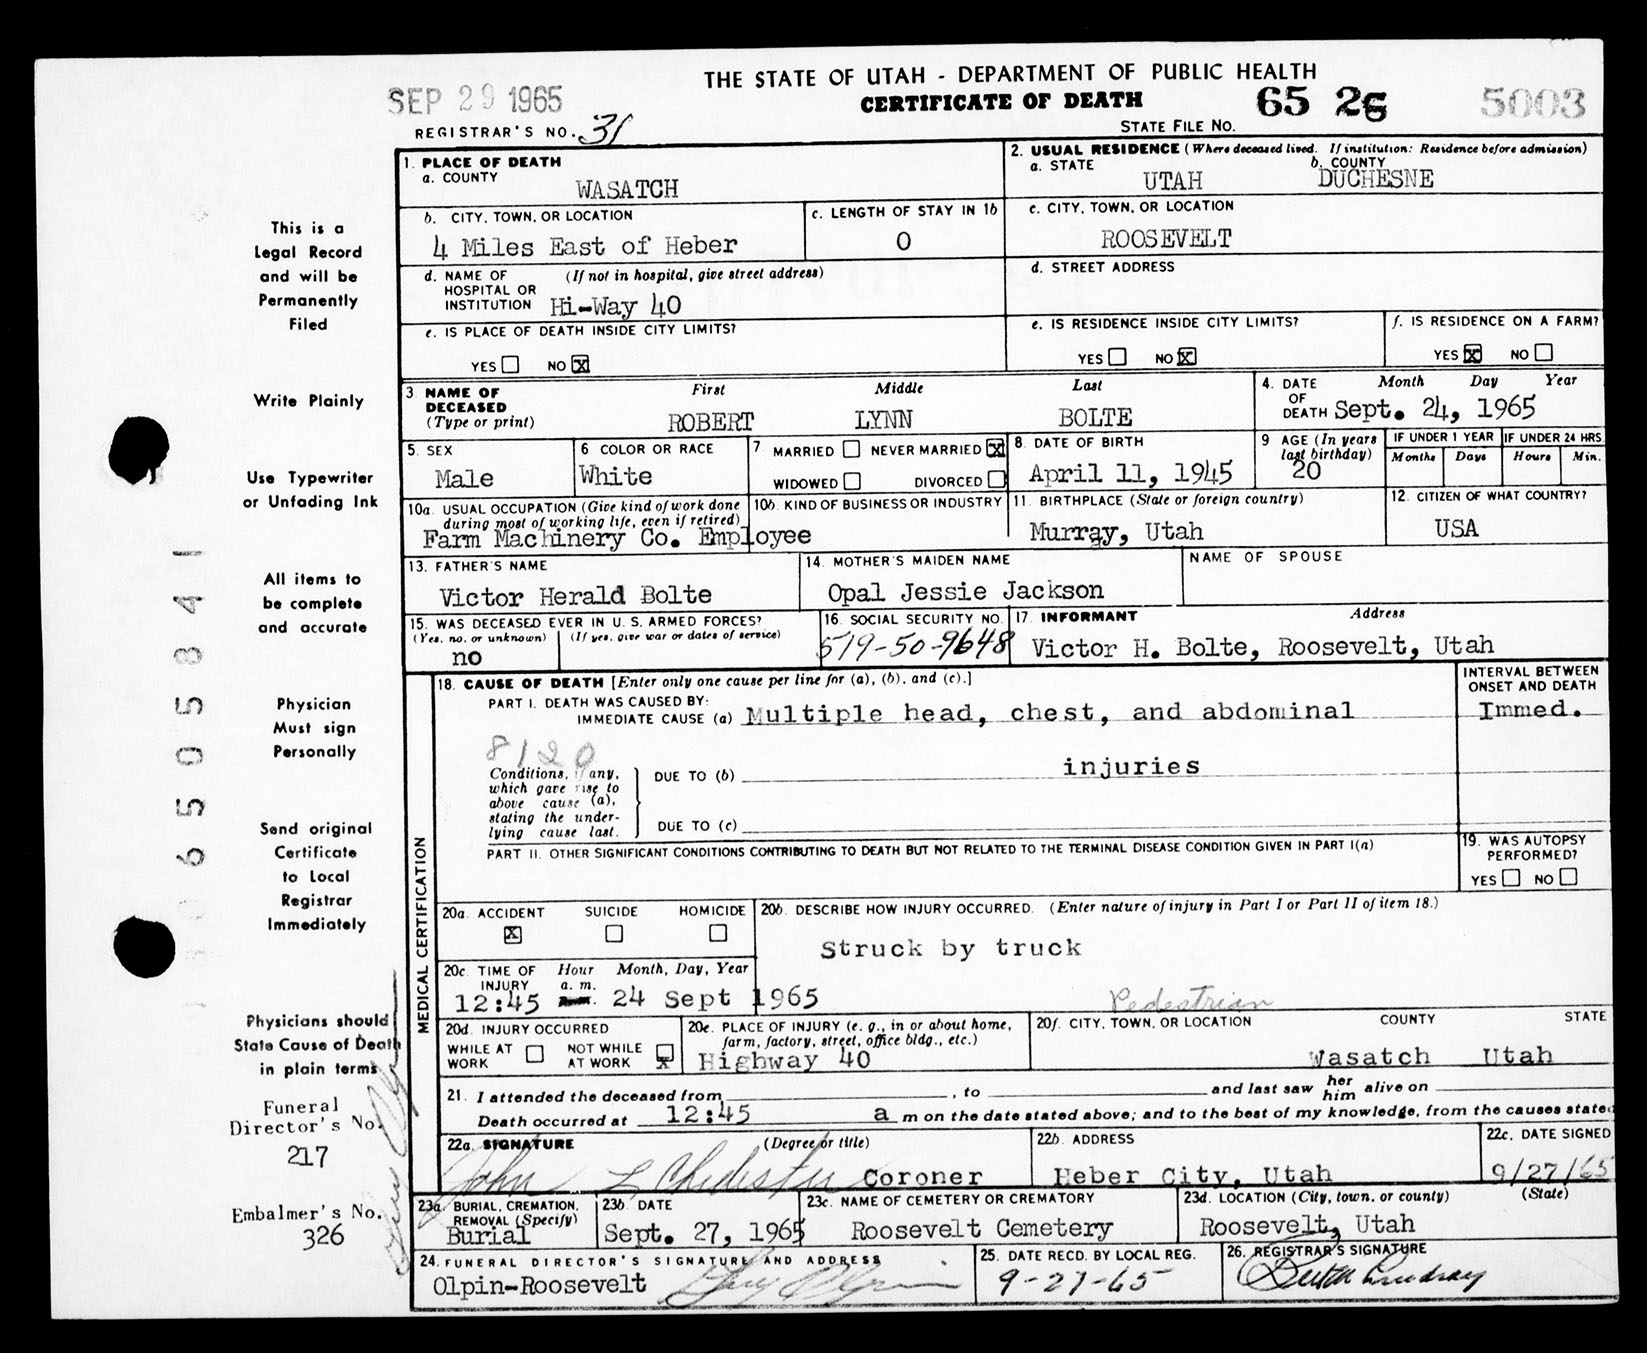 THE STATE OF UTAH - DEPARTMENT OF PUBLIC HEALTH
SEP 29 1965
CERTIFICATE OF DEATH
65 26 5003
REGISTRAR'S NO. 31
STATE FILE NO.
1. PLACE OF DEATH
a. COUNTY
WASATCH
2. USUAL RESIDENCE (Where deceased lived. If institution: Residence before admission)
a. STATE
UTAH
b. COUNTY
DUCHESNE
b. CITY, TOWN, OR LOCATION
4 Miles East of Heber
c. LENGTH OF STAY IN 1b
0
c. CITY, TOWN, OR LOCATION
ROOSEVELT
d. NAME OF HOSPITAL OR INSTITUTION
(If not in hospital, give street address)
Hi-Way 40
d. STREET ADDRESS
e. IS PLACE OF DEATH INSIDE CITY LIMITS?
YES NO X
e. IS RESIDENCE INSIDE CITY LIMITS?
YES NO X
f. IS RESIDENCE ON A FARM?
YES X NO
3. NAME OF DECEASED
(Type or print)
First Middle Last
ROBERT LYNN BOLTE
4. DATE OF DEATH
Month Day Year
Sept. 24, 1965
5. SEX
Male
6 COLOR OR RACE
White
7 MARRIED NEVER MARRIED X
WIDOWED DIVORCED
8. DATE OF BIRTH
April 11, 1945
9 AGE (In years last birthday)
20
IF UNDER 1 YEAR
Months Days
IF UNDER 24 HRS
Hours Min.
10a. USUAL OCCUPATION (Give kind of work done during most of working life, even if retired)
Farm Machinery Co. Employee
10b. KIND OF BUSINESS OR INDUSTRY
11. BIRTHPLACE (State or foreign country)
Murray, Utah
12. CITIZEN OF WHAT COUNTRY?
USA
13. FATHER'S NAME
Victor Herald Bolte
14. MOTHER'S MAIDEN NAME
Opal Jessie Jackson
NAME OF SPOUSE
15. WAS DECEASED EVER IN U. S. ARMED FORCES?
(Yes, no, or unknown) (If yes, give war or dates of service)
no
16. SOCIAL SECURITY NO.
519-50-9648
17. INFORMANT Address
Victor H. Bolte, Roosevelt, Utah
MEDICAL CERTIFICATION
18. CAUSE OF DEATH [Enter only one cause per line for (a), (b), and (c).]
PART I. DEATH WAS CAUSED BY:
IMMEDIATE CAUSE (a) Multiple head, chest, and abdominal
INTERVAL BETWEEN ONSET AND DEATH
Immed.
8120
injuries
Conditions, if any, which gave rise to above cause (a), stating the underlying cause last.
DUE TO (b)
DUE TO (c)
PART II. OTHER SIGNIFICANT CONDITIONS CONTRIBUTING TO DEATH BUT NOT RELATED TO THE TERMINAL DISEASE CONDITION GIVEN IN PART I(a)
19. WAS AUTOPSY PERFORMED?
YES NO
20a. ACCIDENT SUICIDE HOMICIDE
X
20b. DESCRIBE HOW INJURY OCCURRED. (Enter nature of injury in Part I or Part II of item 18.)
Struck by truck
Pedestrian
20c. TIME OF INJURY
Hour Month, Day, Year
a. m.
12:45 24 Sept 1965
20d. INJURY OCCURRED
WHILE AT WORK NOT WHILE AT WORK X
20e. PLACE OF INJURY (e. g., in or about home, farm, factory, street, office bldg., etc.)
Highway 40
20f. CITY, TOWN, OR LOCATION COUNTY STATE
Wasatch Utah
21. I attended the deceased from , to and last saw her him alive on
Death occurred at 12:45 a m on the date stated above; and to the best of my knowledge, from the causes stated
22a. SIGNATURE (Degree or title)
John L Chidester Coroner
22b. ADDRESS
Heber City, Utah
22c. DATE SIGNED
9/27/65
23a. BURIAL, CREMATION, REMOVAL (Specify)
Burial
23b. DATE
Sept. 27, 1965
23c. NAME OF CEMETERY OR CREMATORY
Roosevelt Cemetery
23d. LOCATION (City, town, or county) (State)
Roosevelt, Utah
24. FUNERAL DIRECTOR'S SIGNATURE AND ADDRESS
Olpin-Roosevelt
25. DATE RECD. BY LOCAL REG.
9-27-65
26. REGISTRAR'S SIGNATURE
This is a
Legal Record
and will be
Permanently
Filed
Write Plainly
Use Typewriter
or Unfading Ink
All items to
be complete
and accurate
Physician
Must sign
Personally
Send original
Certificate
to Local
Registrar
Immediately
Physicians should
State Cause of Death
in plain terms
Funeral
Director's No.
217
Embalmer's No.
326
065050841